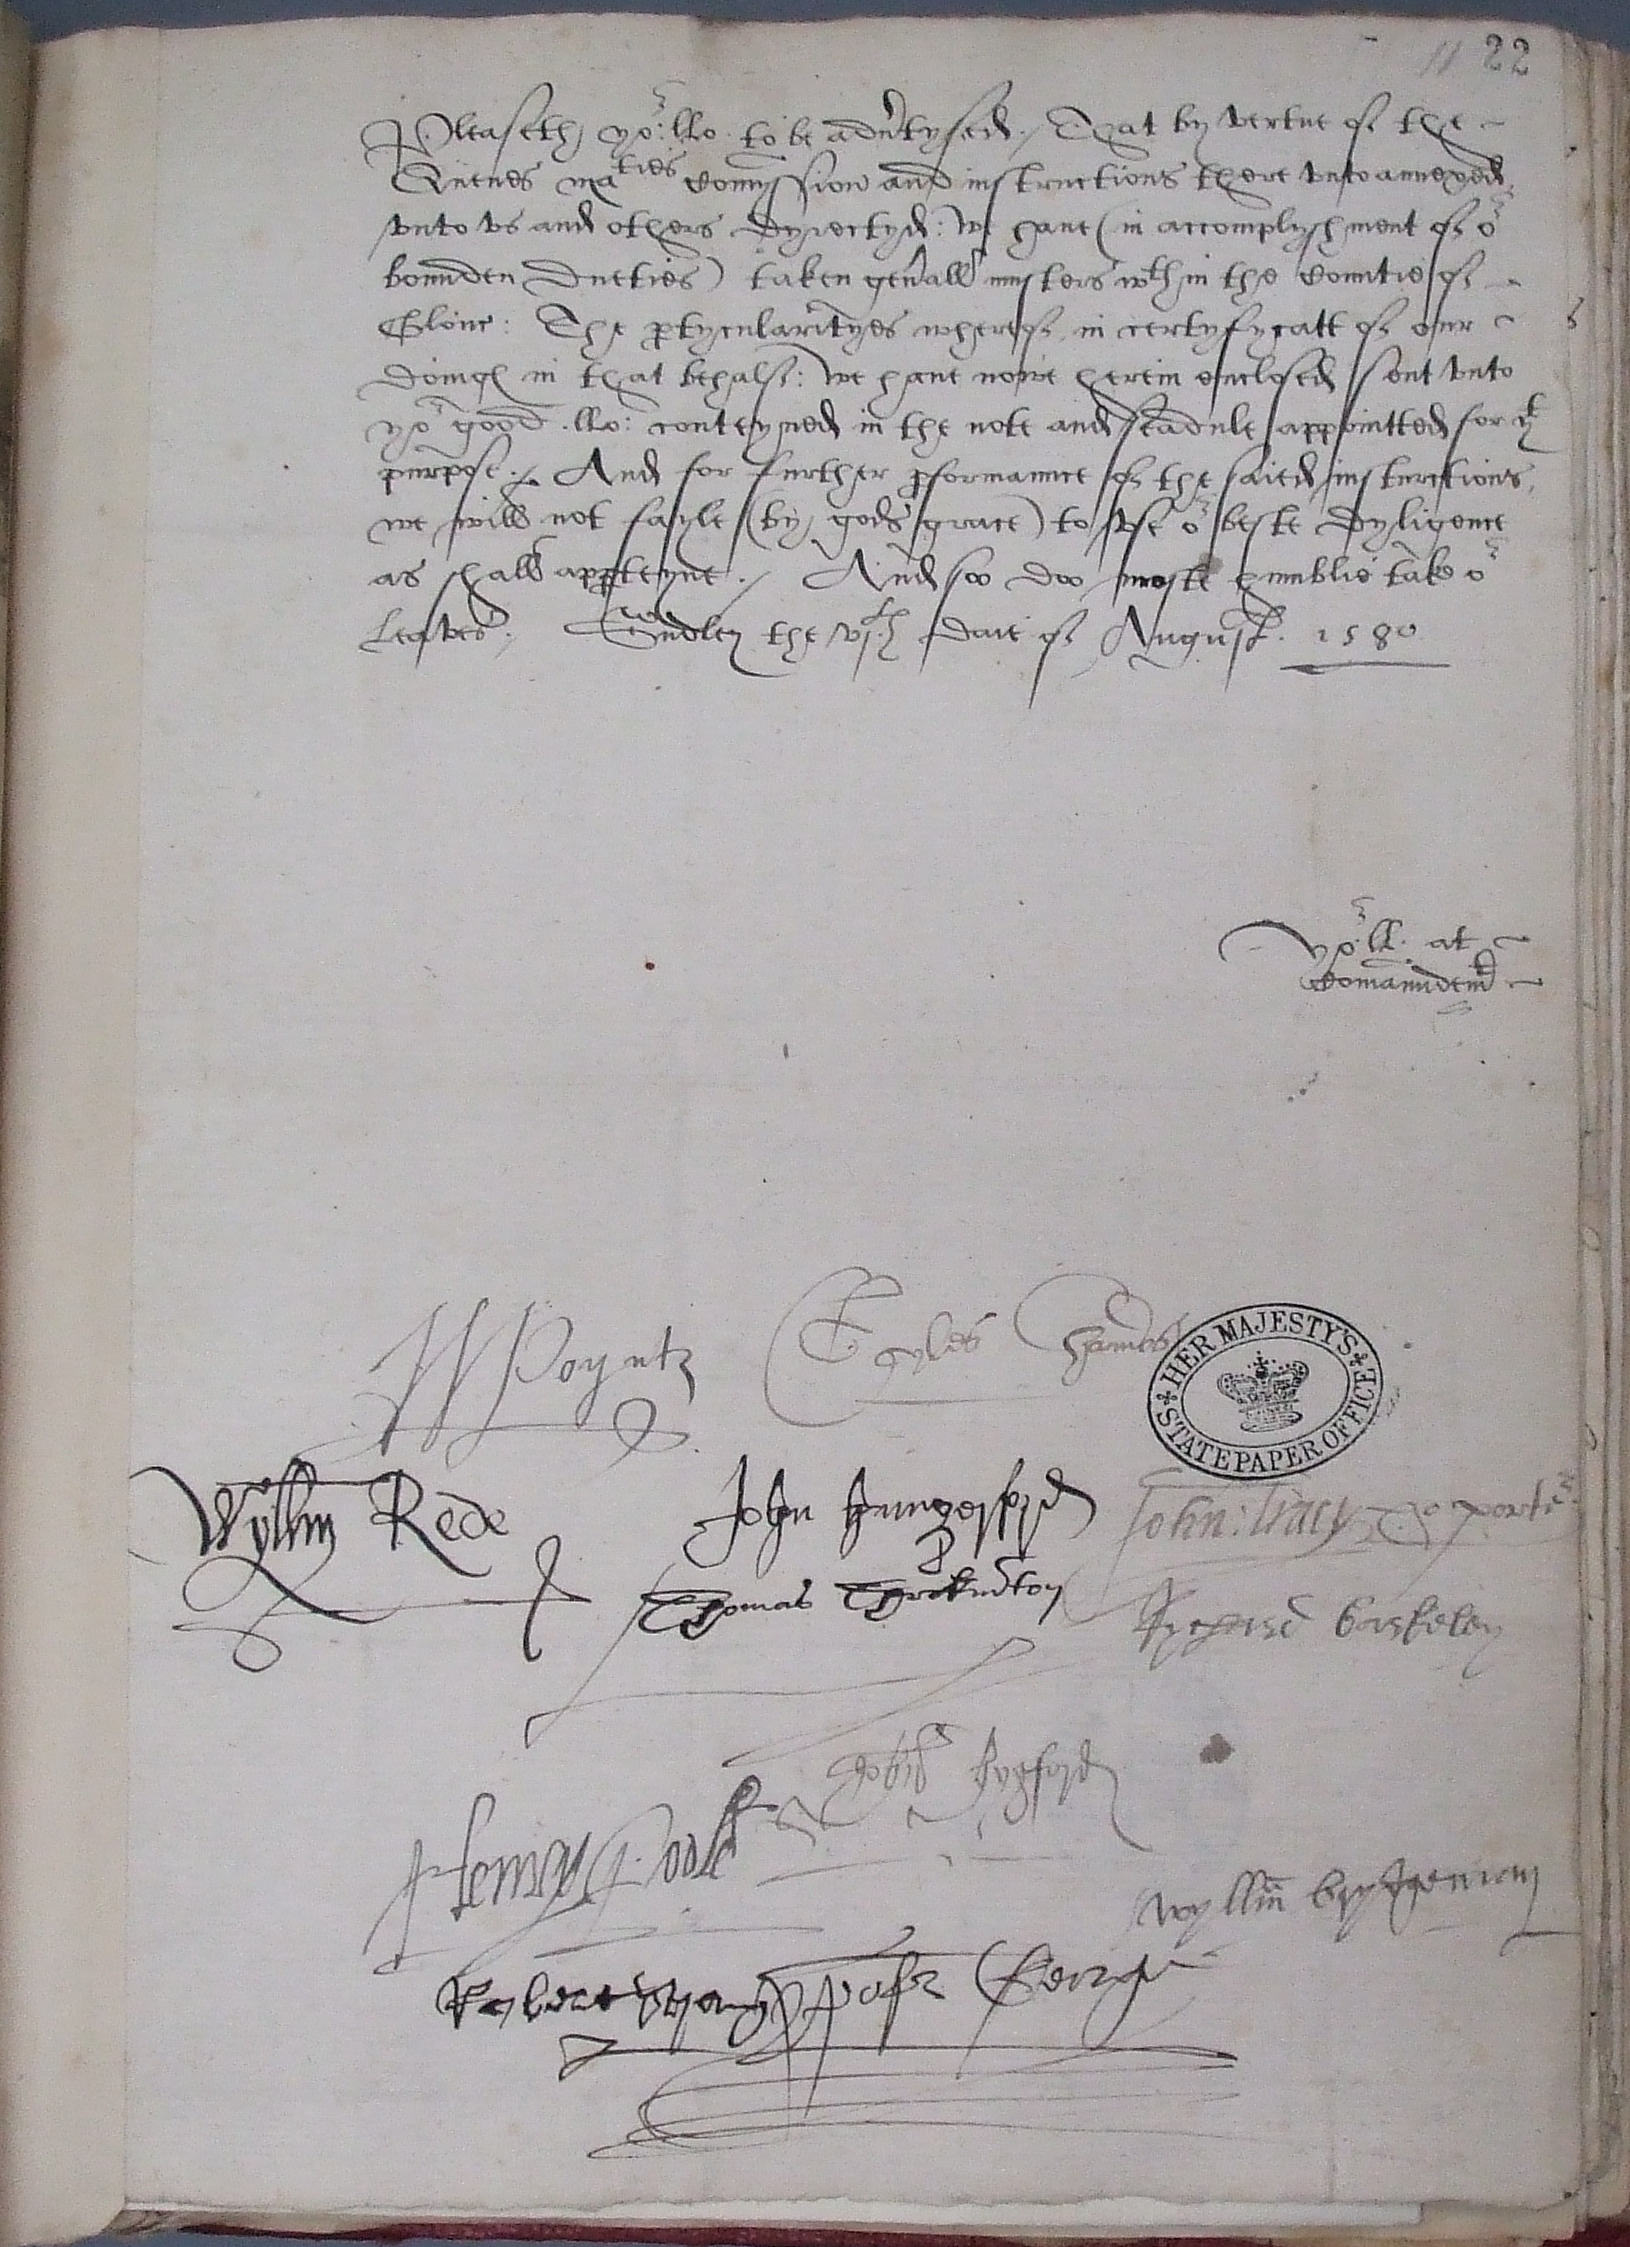 11 22
Pleaseth yor: llo. to be adv'tysed./ That by vertue of the
Quenes maties Comyssion and instructions there vnto annexed
vnto vs and others dyrectyd: we haue (in accomplyshment of or
bounden dueties) taken gen'all musters wth in the Countie of
Glouc: The ptycularityes whereof, in certyfycatt of our
doings in that behalf: we haue nowe herein enclosed sent vnto
yor good .llo: conteyned in the note and scedule appointted for yt
purpose./ And for further pformaunce of the saied instructions,
we will not fayle (by gods grace) to vse or beste dyligence
as shall appteyne./ And soo doo moste humblie take or
leaves./ Sudley the vjth daie of August. 1580
yor. ll. at
Comaundemt
Poyntz Gyles Chandos
HER MAJESTY'S STATE PAPER OFFICE
Wyllm Rede John Hungerford John: Tracy
Thomas Throkmton Rychard barkeley
Henry Poole
wyllm
George